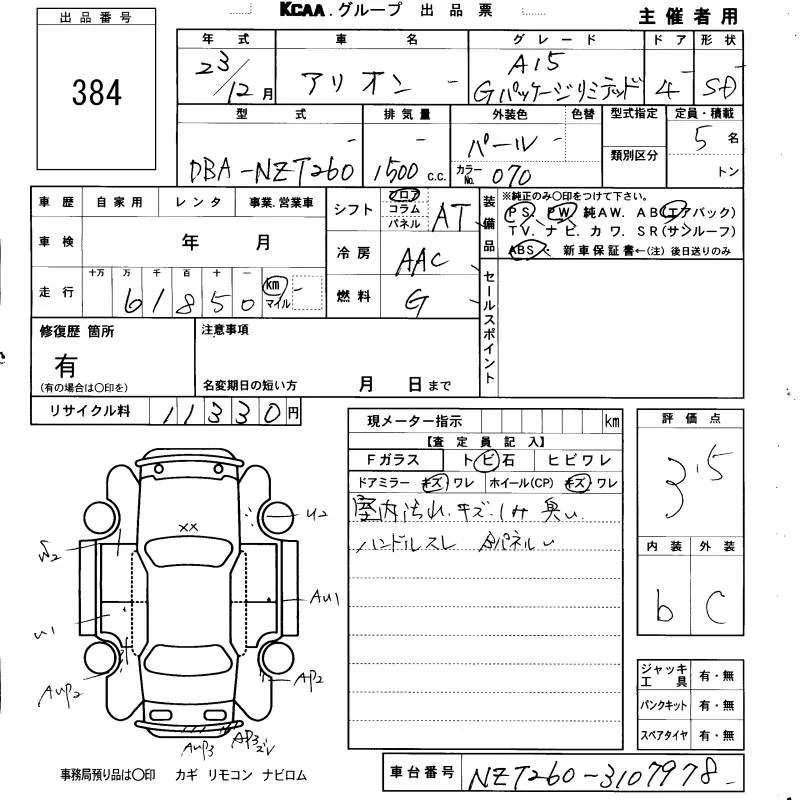 KCAA.グループ 出品票
主催者用
出品番号
384
年式 車名 グレード ドア 形状
23/12月 アリオン A15 Gパッケージリミテッド 4 SD
型式 排気量 外装色 色替 型式指定 定員・積載
DBA-NZT260 1500 c.c. パール 5名
カラーNo. 070 類別区分 トン
車歴 自家用 レンタ 事業.営業車
車検 年 月
走行 十万 万 千 百 十 km マイル
61850
シフト フロア コラム パネル AT
冷房 AAC
燃料 G
装備品 ※純正のみ〇印をつけて下さい。
PS. PW. 純AW. AB(エアバック)
TV. ナビ. カワ. SR(サンルーフ)
ABS. 新車保証書←(注) 後日送りのみ
セールスポイント
修復歴 箇所
有
(有の場合は〇印を)
注意事項
名変期日の短い方 月 日まで
リサイクル料 11330円
現メーター指示 km
【査定員記入】
Fガラス トビ石 ヒビワレ
ドアミラー キズ ワレ ホイール(CP) キズ ワレ
室内汚れ.キズ.シミ 臭い
ハンドルスレ Bパネルu
評価点
3.5
内装 外装
b C
ジャッキ工具 有・無
パンクキット 有・無
スペアタイヤ 有・無
×× U2
U1 AU1
AUP2 AP2
AUP3 AP3
事務局預り品は〇印 カギ リモコン ナビロム
車台番号 NZT260-3107978